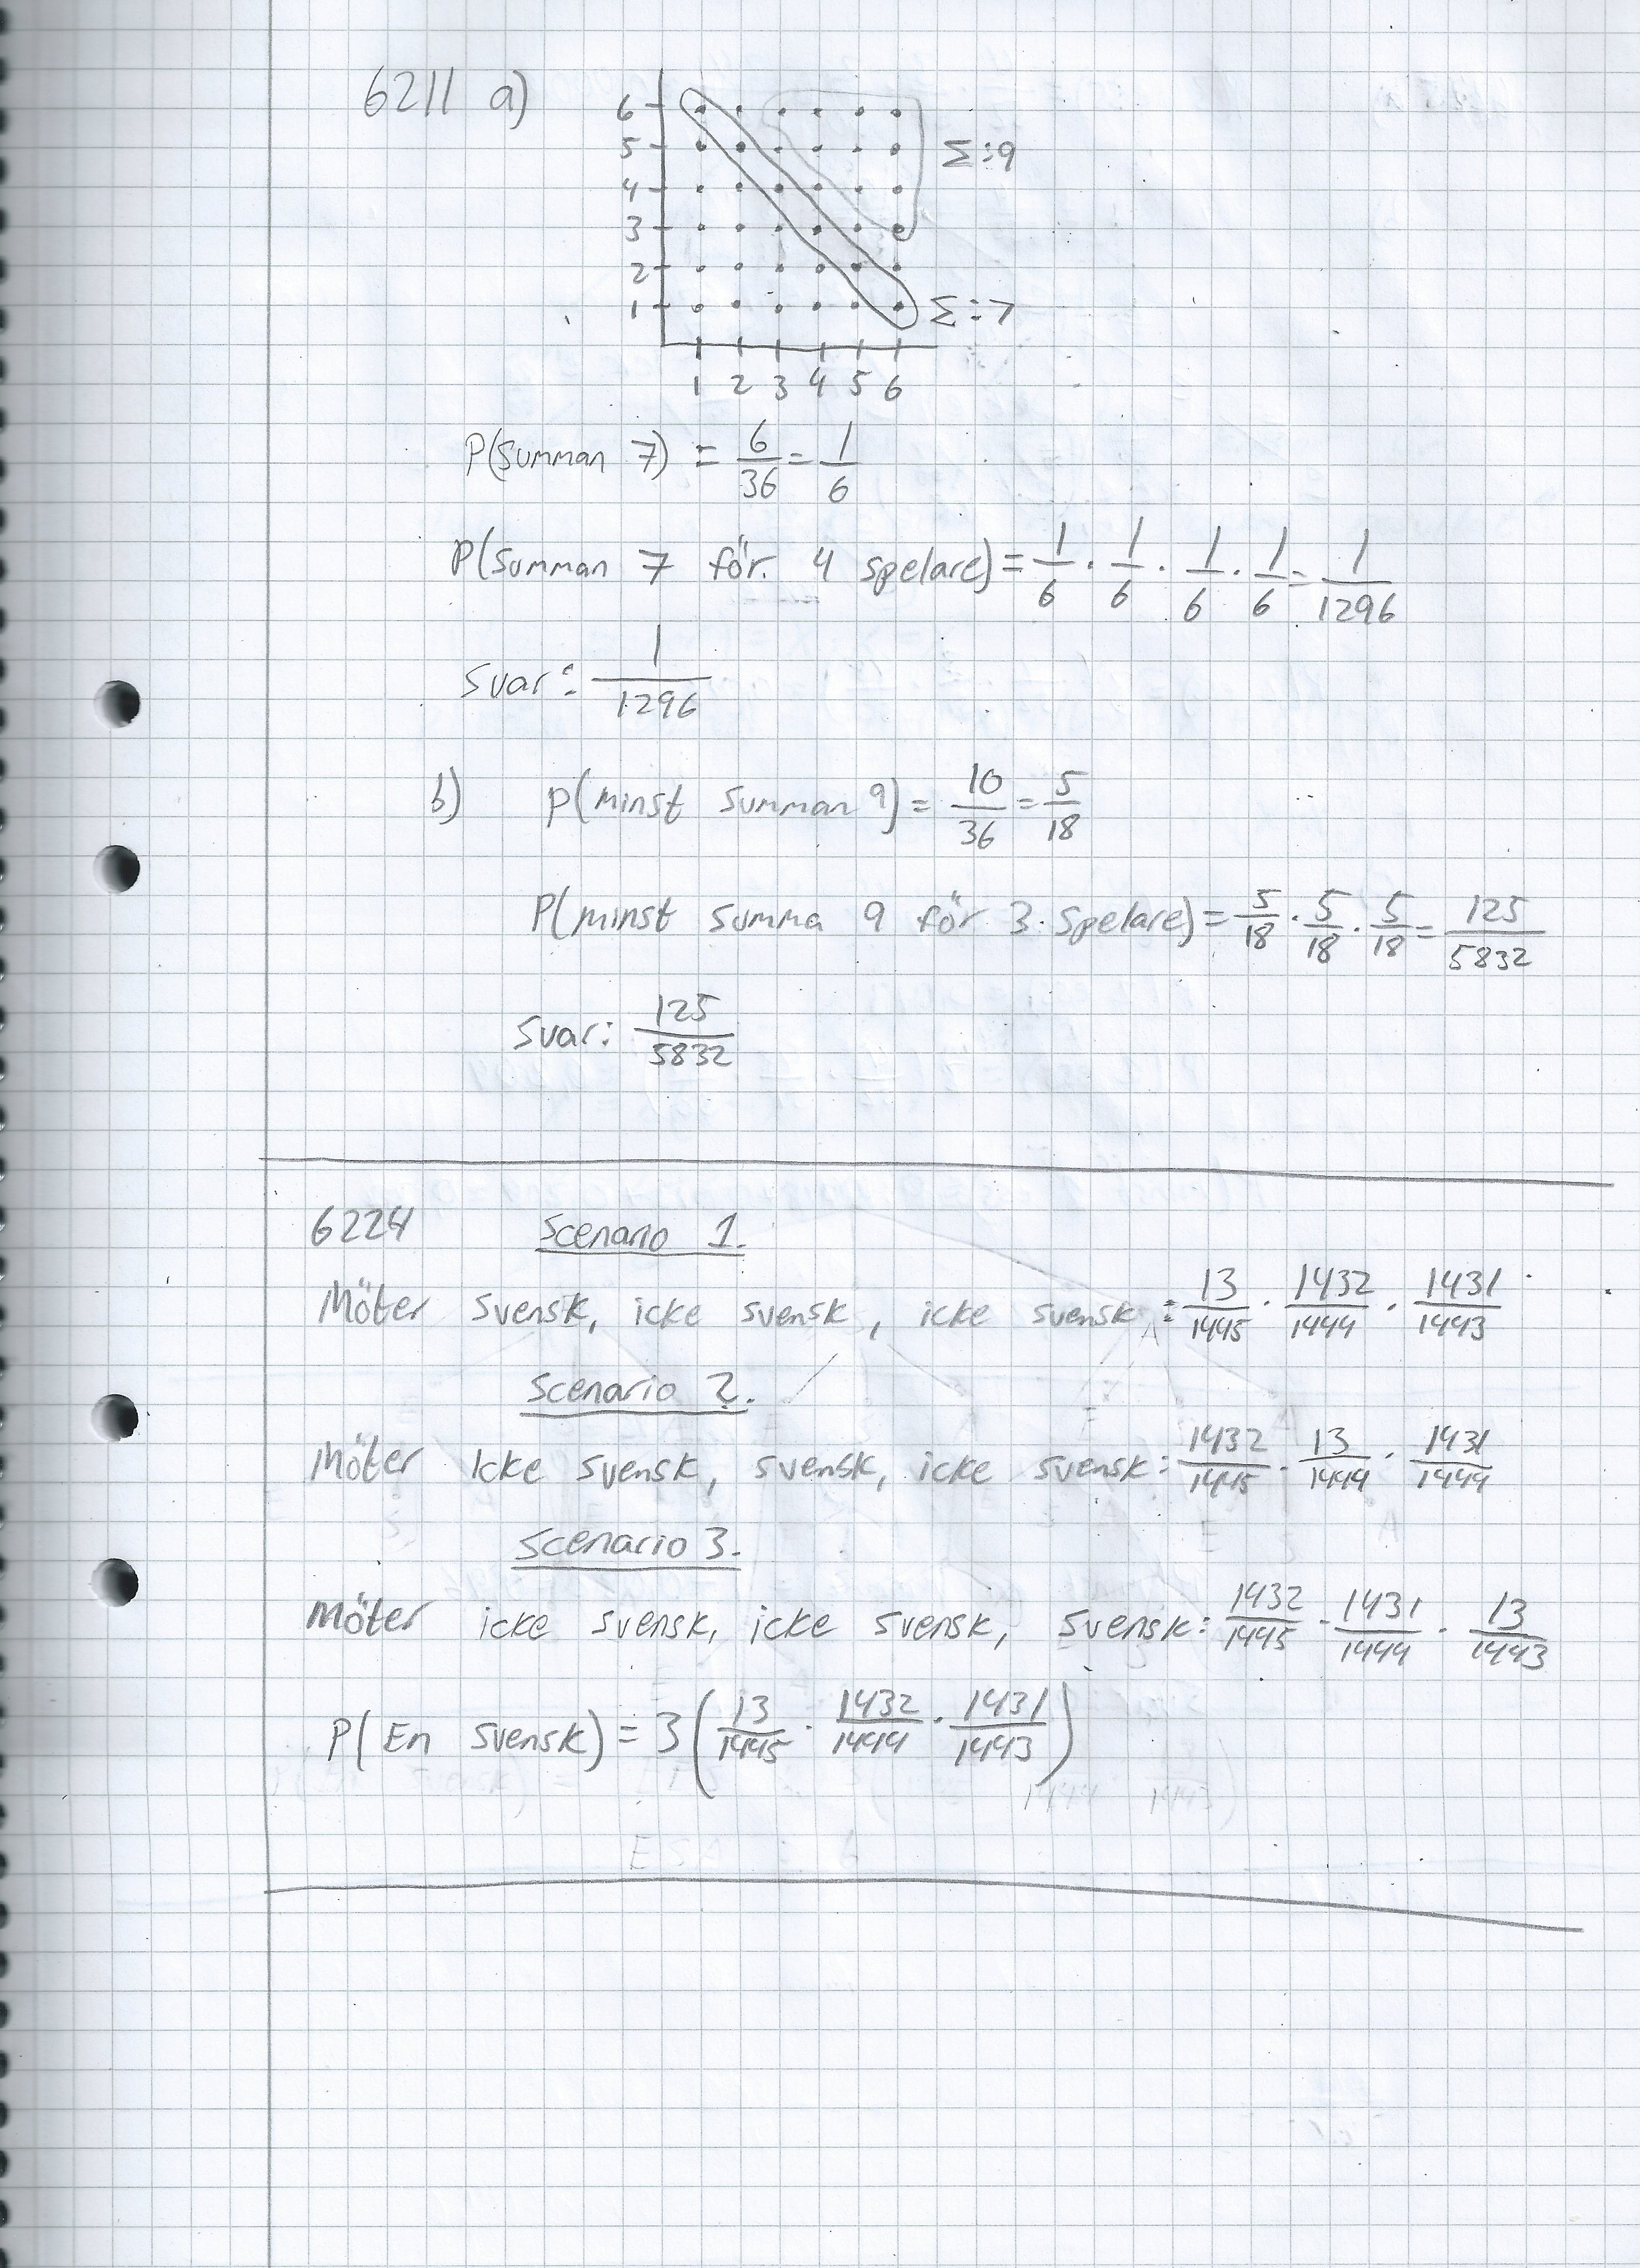 6211 a)
6
5
Σ:9
4
3
2
1
Σ:7
1 2 3 4 5 6
P(Summan 7) = 6/36 = 1/6
P(Summan 7 för. 4 spelare) = 1/6 · 1/6 · 1/6 · 1/6 = 1/1296
Svar: 1/1296
b) P(minst Summan 9) = 10/36 = 5/18
P(minst summa 9 för 3 spelare) = 5/18 · 5/18 · 5/18 = 125/5832
Svar: 125/5832
6224 Scenario 1.
Möter svensk, icke svensk, icke svensk: 13/1445 · 1432/1444 · 1431/1443
Scenario 2.
Möter Icke svensk, svensk, icke svensk: 1432/1445 · 13/1444 · 1431/1444
Scenario 3.
Möter icke svensk, icke svensk, svensk: 1432/1445 · 1431/1444 · 13/1443
P(En svensk) = 3(13/1445 · 1432/1444 · 1431/1443)